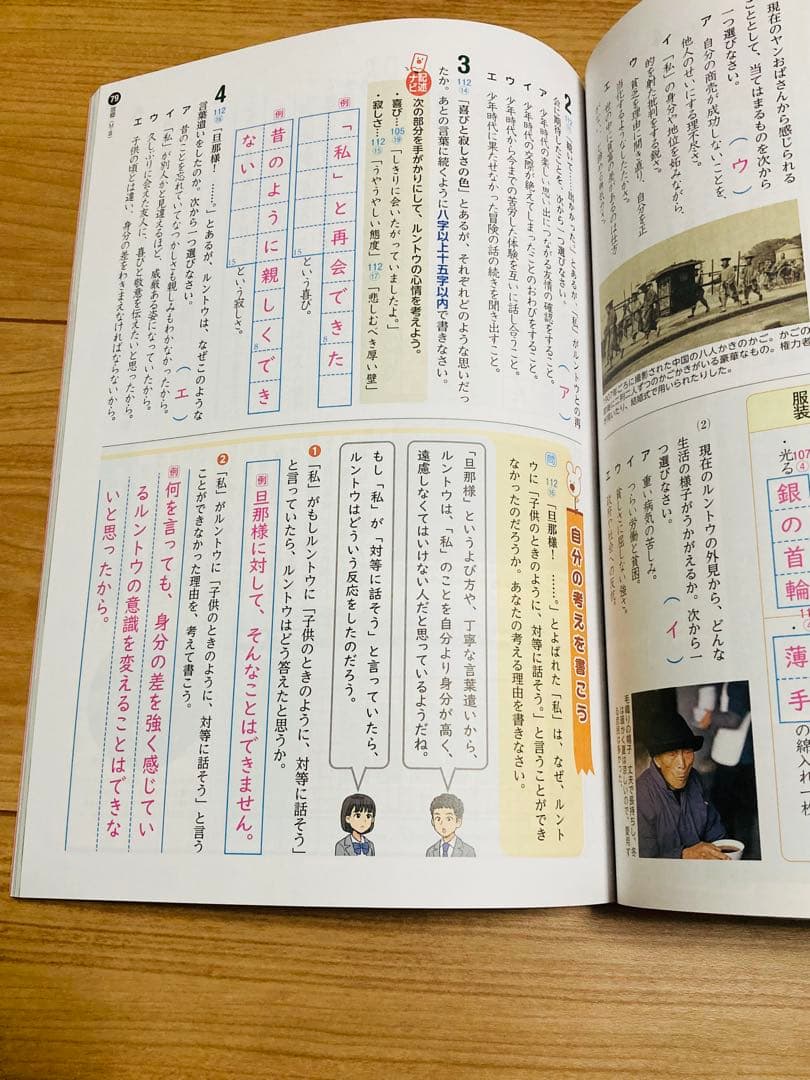 現在のヤンおばさんから感じられる
こととして、当てはまるものを次から
一つ選びなさい。
（ウ）
ア 自分の商売が成功しないことを、
他人のせいにする理不尽さ。
イ 「私」の身分や地位を妬みながら、
的を射た批判をする鋭さ。
ウ 貧乏を理由に開き直り、自分を正
当化するようなしたたかさ。
かごのかごかきがいる豪華なもの。権力者
結婚式で用いられたりした。
服装
・光る
107
④
銀の首輪
薄手
の綿入れ一枚
(2) 現在のルントウの外見から、どんな
生活の様子がうかがえるか。次から一
つ選びなさい。
（イ）
ア 重い病気の苦しみ。
イ つらい労働と貧困。
ウ 貧しさに屈しない強さ。
エ 政府や社会への反感。
毛織りの帽子
2
（ア）
ア 少年時代の楽しい思い出につながる友情の確認をすること。
イ 少年時代の交際が絶えてしまったことのおわびをすること。
ウ 少年時代から今までの苦労した体験を互いに話し合うこと。
エ 少年時代に果たせなかった冒険の話の続きを聞き出すこと。
3
112
⑭
「喜びと寂しさの色」とあるが、それぞれどのような思いだっ
たか。あとの言葉に続くように八字以上十五字以内で書きなさい。
記述ナビ
次の部分を手がかりにして、ルントウの心情を考えよう。
・喜び…105⑲「しきりに会いたがっていましたよ。」
・寂しさ…112⑮「うやうやしい態度」 112⑰「悲しむべき厚い壁」
例
「私」と再会できた
8
15
という喜び。
例
昔のように親しくでき
ない
8
15
という寂しさ。
4
112
⑯
「旦那様！……。」とあるが、ルントウは、なぜこのような
言葉遣いをしたのか。次から一つ選びなさい。
（エ）
ア 昔のことを忘れていてなつかしさも親しみもわかなかったから。
イ 「私」が別人かと見違えるほど、威厳ある姿になっていたから。
ウ 久しぶりに会えた友人に、喜びと敬意を伝えたいと思ったから。
エ 子供の頃とは違い、身分の差をわきまえなければならないから。
79
自分の考えを書こう
問
112
⑯
「旦那様！……。」とよばれた「私」は、なぜ、ルント
ウに「子供のときのように、対等に話そう。」と言うことができ
なかったのだろうか。あなたの考える理由を書きなさい。
「旦那様」というよび方や、丁寧な言葉遣いから、
ルントウは、「私」のことを自分より身分が高く、
遠慮しなくてはいけない人だと思っているようだね。
もし「私」が「対等に話そう」と言っていたら、
ルントウはどういう反応をしたのだろう。
❶ 「私」がもしルントウに「子供のときのように、対等に話そう」
と言っていたら、ルントウはどう答えたと思うか。
例
旦那様に対して、そんなことはできません。
❷ 「私」がルントウに「子供のときのように、対等に話そう」と言う
ことができなかった理由を、考えて書こう。
例
何を言っても、身分の差を強く感じてい
るルントウの意識を変えることはできな
いと思ったから。